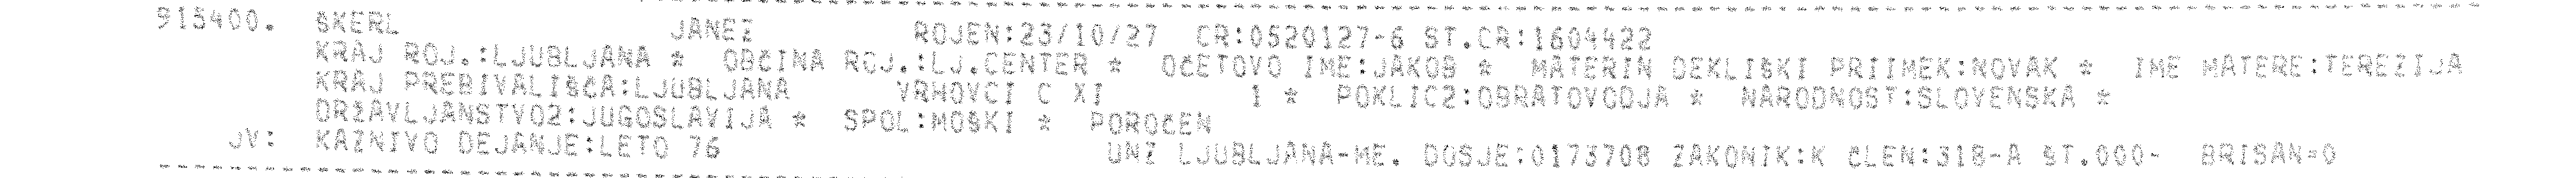 915400. SKERL JANEZ ROJEN:23/10/27 CR:0520127-6 ST.CR:1604422
KRAJ ROJ.:LJUBLJANA * OBČINA ROJ.:LJ.CENTER * OČETOVO IME:JAKOB * MATERIN DEKLIŠKI PRIIMEK:NOVAK * IME MATERE:TEREZIJA
KRAJ PREBIVALIŠČA:LJUBLJANA VRHOVCI C XI 1 * POKLIC2:OBRATOVODJA * NARODNOST:SLOVENSKA *
DRŽAVLJANSTVO2:JUGOSLAVIJA * SPOL:MOŠKI * POROČEN
JV: KAZNIVO DEJANJE:LETO 76 UNZ LJUBLJANA-ME. DOSJE:0173708 ZAKONIK:K ČLEN:318-A ŠT.000- BRISAN=0